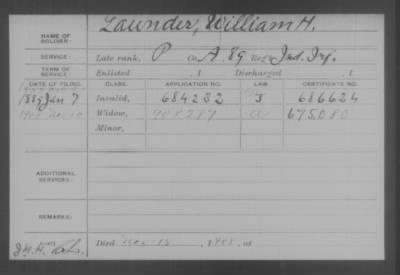 Launder, William H.
NAME OF SOLDIER:
SERVICE: Late rank, P Co. A, 89 Reg't Ind. Inf.
TERM OF SERVICE: Enlisted , 1 Discharged , 1
DATE OF FILING. CLASS. APPLICATION NO. LAW. CERTIFICATE NO.
1889 Jan 7 Invalid, 684232 J 686624
1908 Widow, 908287 675080
Minor,
ADDITIONAL SERVICES:
REMARKS:
Died Nov. 15, 1908, at